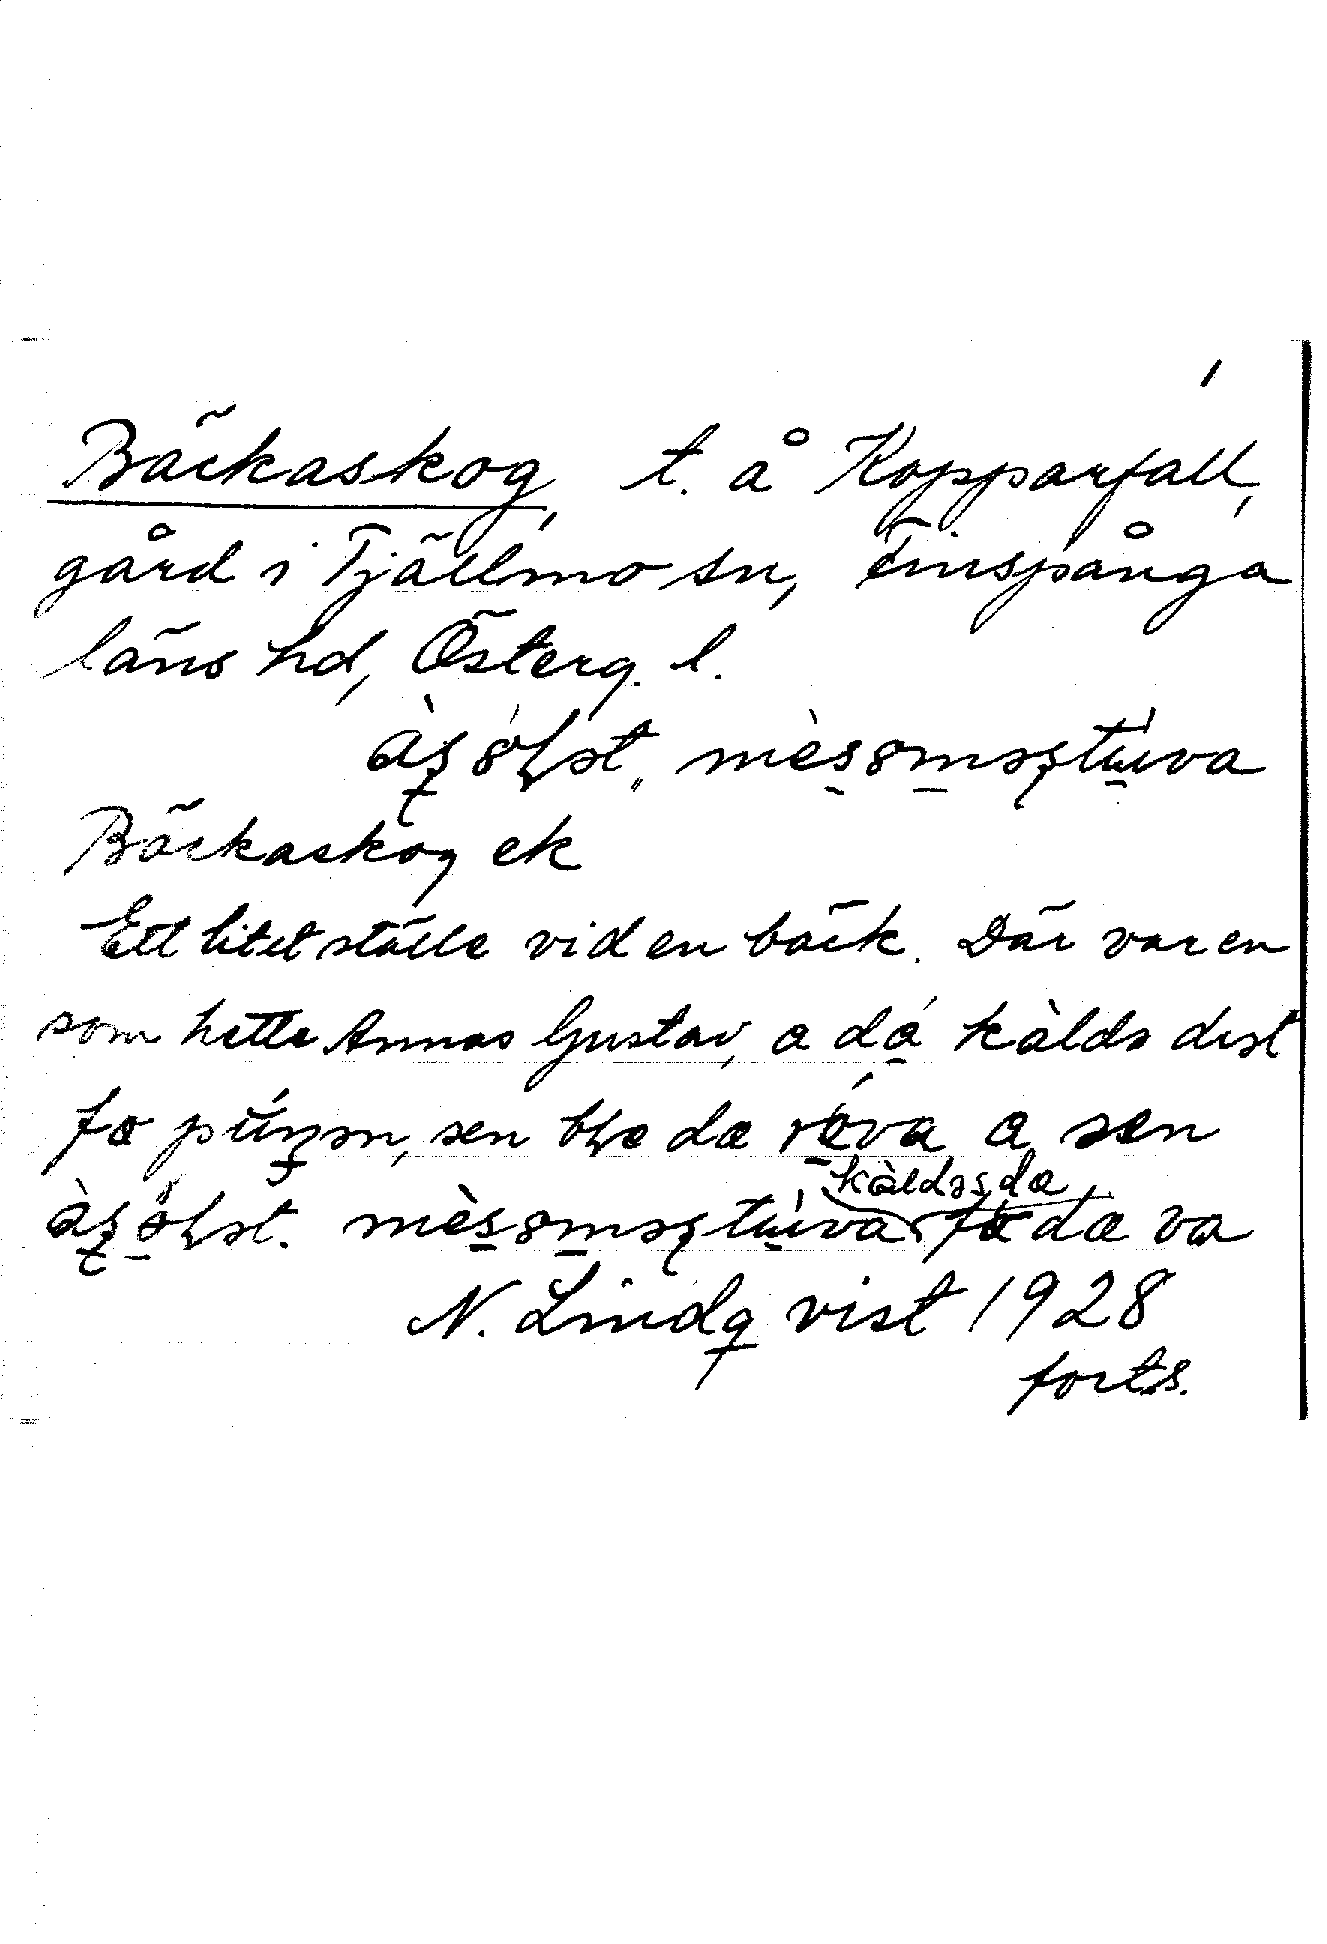 1
Bäckaskog, t. å Kopparfall,
gård i Tjällmo sn, Finspånga
läns hd, Österg. l.
mèsomsstùva
Bäckaskog ek
Ett litet ställe vid en bäck. Där var en
som hette Annas Gustav, a dá kàlda dət
fæ sen da rǽva a sen
kàldəs da
mèsomsstùva fæ dæ va
N. Lindqvist 1928
forts.